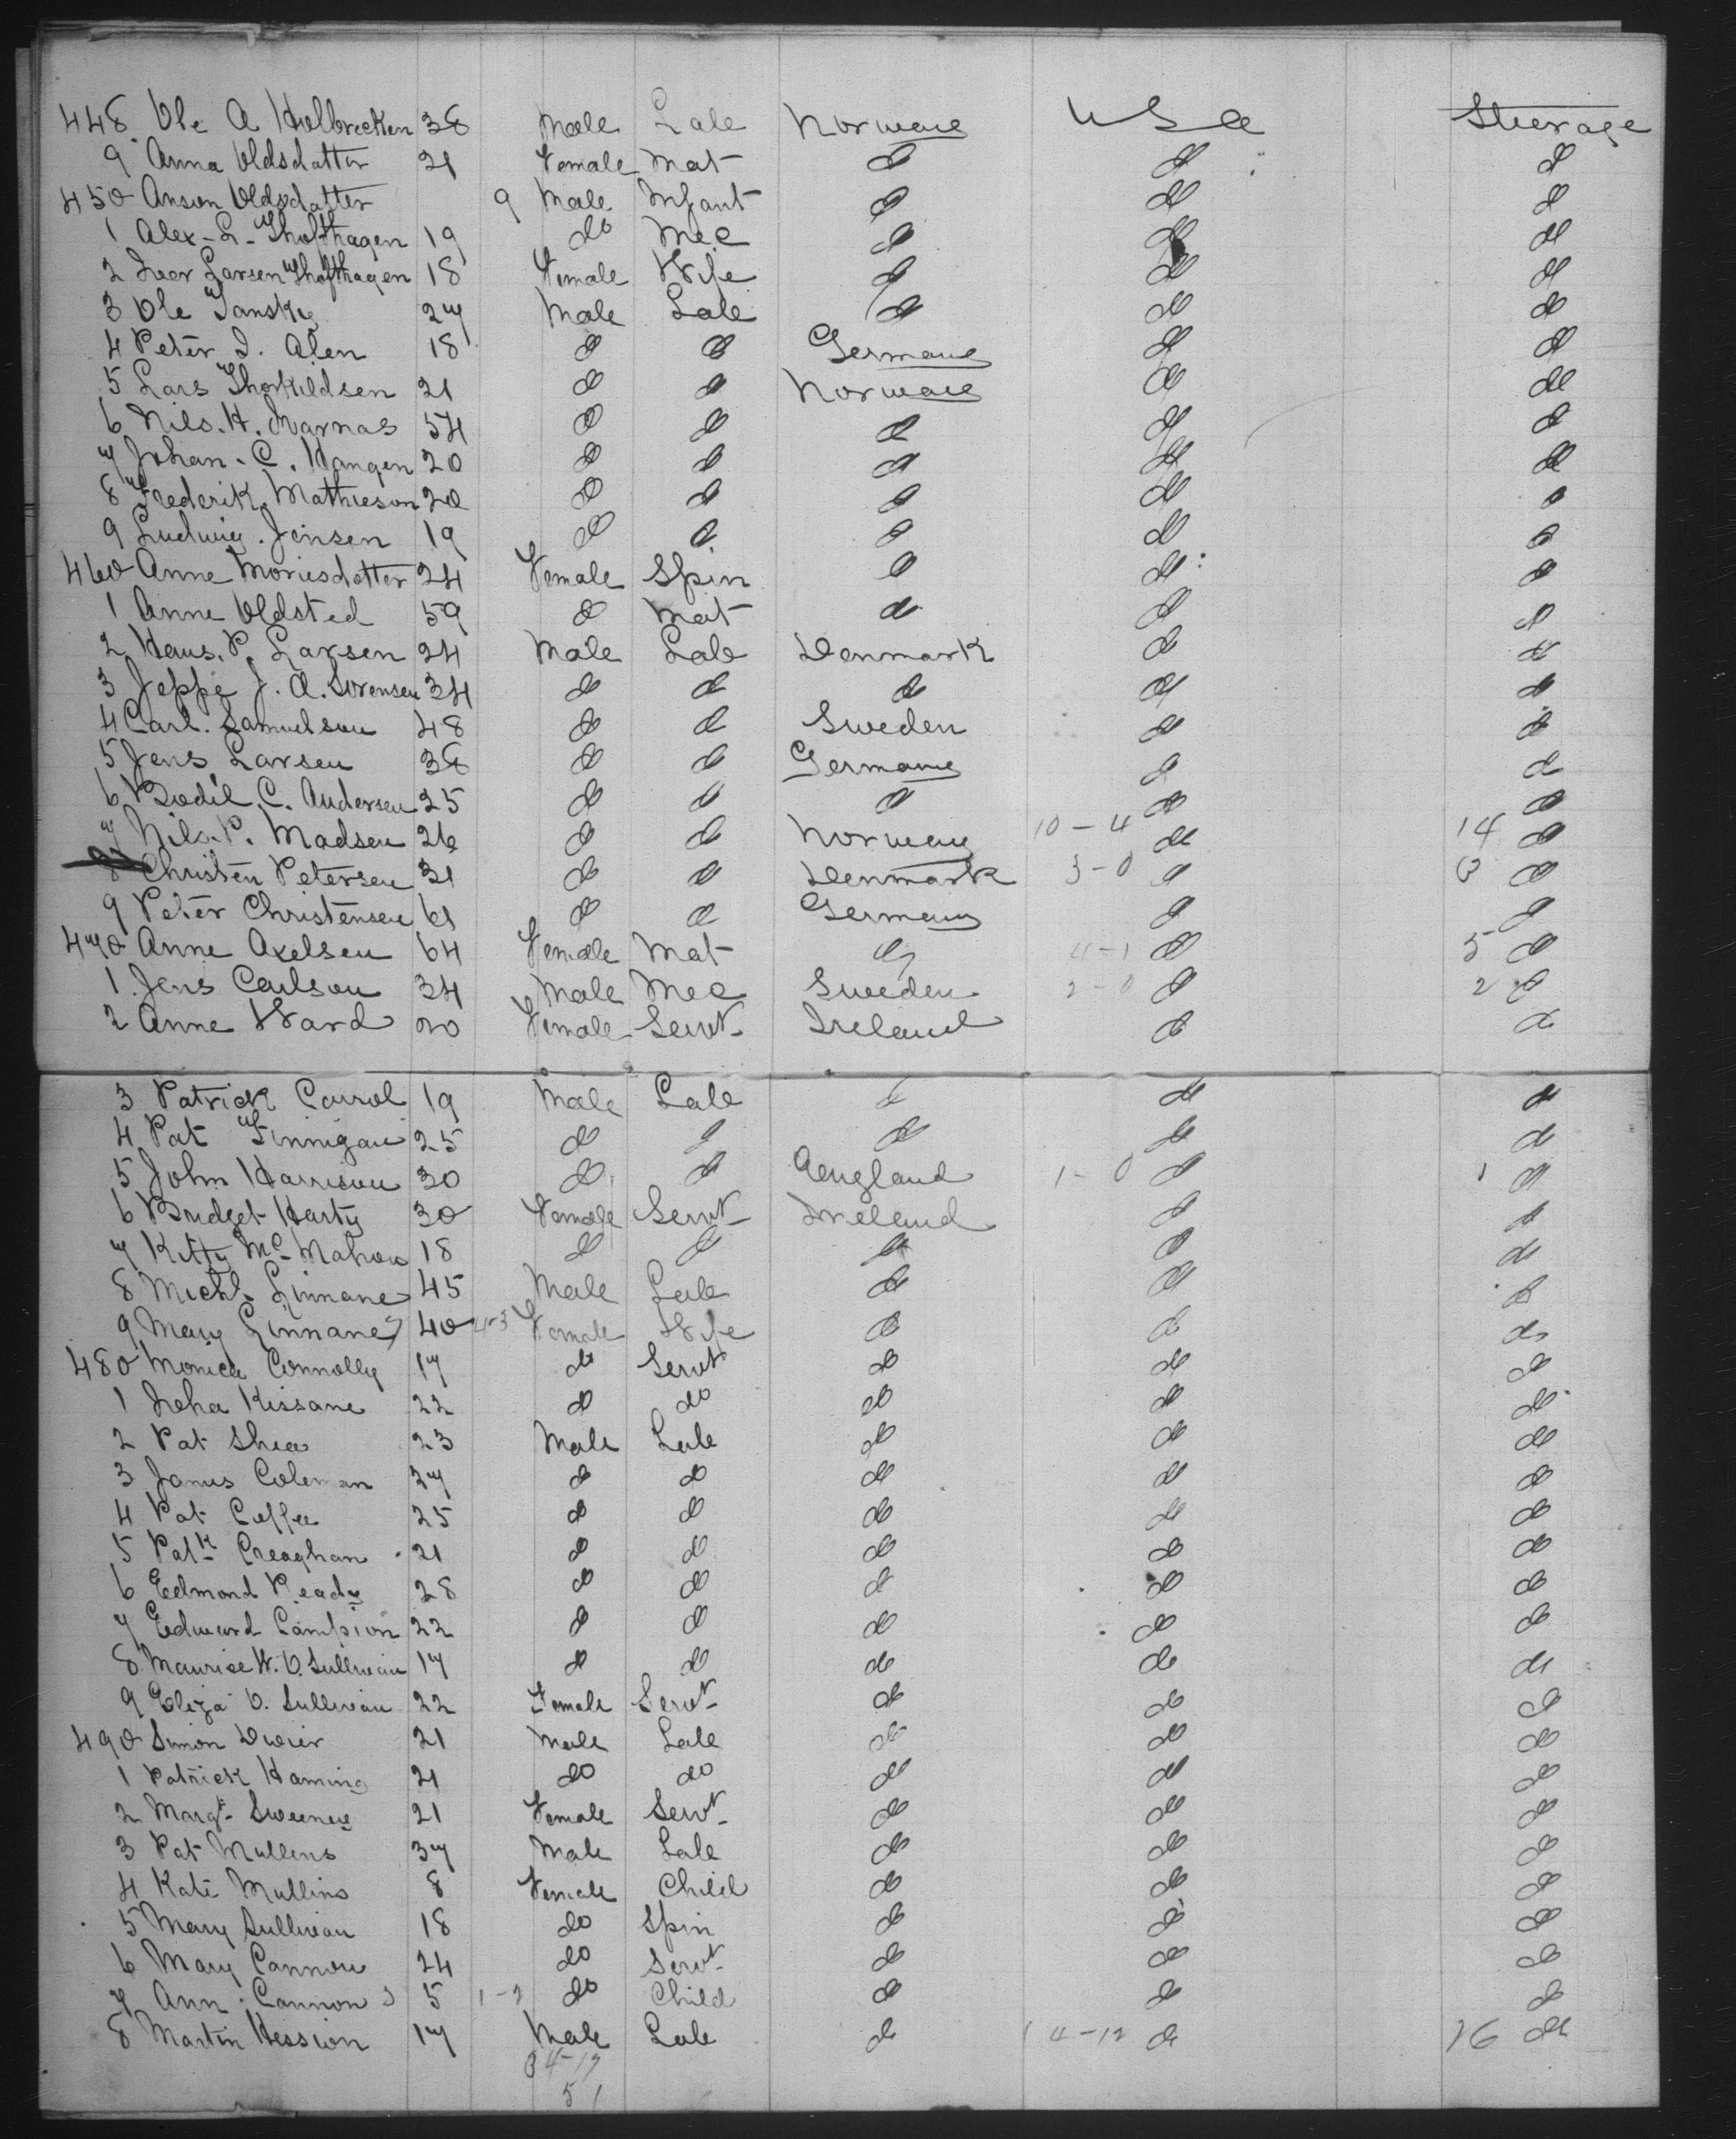 448 Ole A Holbrecken 38 Male Lab Norway USA Steerage
9 Anna Oldsdatter 21 Female Mat do do do
450 Anson Oldsdatter 9 Male Infant do do do
1 Alex - L - Thofthagen 19 do Mec do do do
2 Iver Larsen Thofthagen 18 Female Wife do do do
3 Ole Tansky 27 Male Lab do do do
4 Peter I. Alen 18 do do Germany do do
5 Lars Thorkildsen 21 do do Norway do do
6 Nils. H. Marnas 54 do do do do do
7 Johan. C. Hangen 20 do do do do do
8 Frederik Mathieson 20 do do do do do
9 Ludwig. Jensen 19 do do do do do
460 Anne Moriesdatter 24 Female Spin do do do
1 Anne Oldsted 59 do Mat do do do
2 Hans. P. Larsen 24 Male Lab Denmark do do
3 Jeppe J. A. Sorensen 34 do do do do do
4 Carl. Samuelson 48 do do Sweden do do
5 Jens Larsen 38 do do Germany do do
6 Bodil C. Andersen 25 do do do do do
7 Nils. P. Madsen 26 do do Norway 10-4 do 14 do
8 Christen Petersen 31 do do Denmark 3-0 do 3 do
9 Peter Christensen 61 do do Germany do do
470 Anne Axelsen 64 Female Mat do 4-1 do 5 do
1 Jens Carlson 34 Male Mec Sweden 2-0 do 2 do
2 Anne Ward 20 Female Servt Ireland do do
3 Patrick Carrol 19 Male Lab do do do
4 Pat Finnigan 25 do do do do do
5 John Harrison 30 do do England 1-0 do 1 do
6 Bridget Harty 30 Female Servt Ireland do do
7 Kitty Mc Mahon 18 do do do do do
8 Michl. Linnane 45 Male Lab do do do
9 Mary Linnane 40 Female Wife do do do
480 Monica Connolly 17 do Servt do do do
1 Joha Kissane 22 do do do do do
2 Pat Shea 23 Male Lab do do do
3 James Coleman 37 do do do do do
4 Pat Coffee 25 do do do do do
5 Patk Creaghan 21 do do do do do
6 Edmond Ready 28 do do do do do
7 Edward Campion 22 do do do do do
8 Maurice W. O. Sullivan 17 do do do do do
9 Eliza O. Sullivan 22 Female Servt do do do
490 Simon Dwier 21 Male Lab do do do
1 Patrick Haming 21 do do do do do
2 Margt Sweeney 21 Female Servt do do do
3 Pat Mullens 37 Male Lab do do do
4 Kate Mullins 8 Female Child do do do
5 Mary Sullivan 18 do Spin do do do
6 Mary Cannon 24 do Servt do do do
7 Ann. Cannon 5 1-2 do Child do do do
8 Martin Hession 17 Male Lab do 14-12 do 26 do
34-17
51